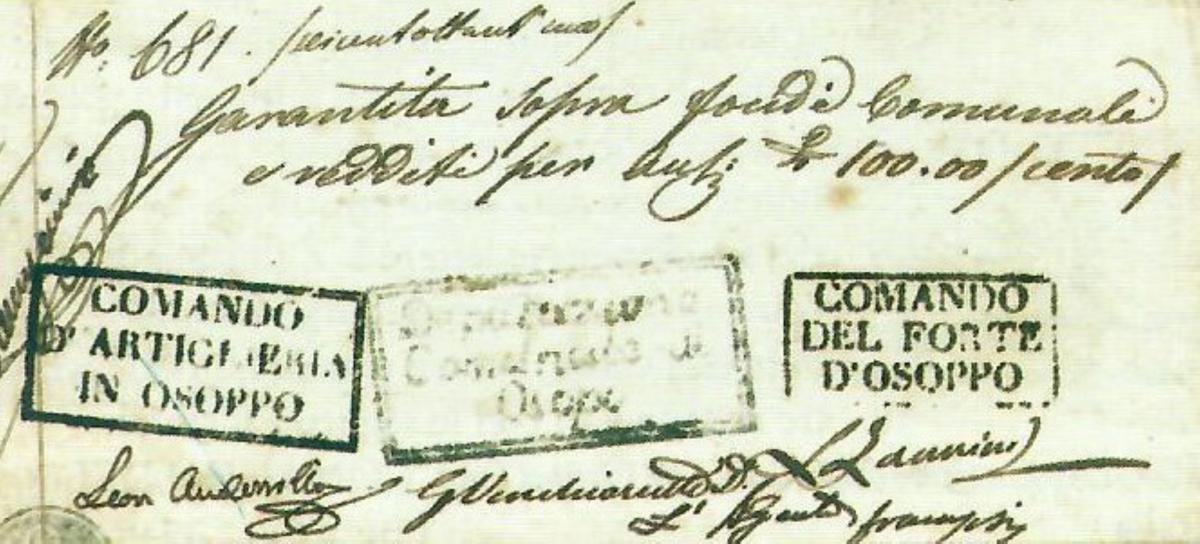 No. 681. /seicentottant'uno/
Garantita sopra fondi Comunali
e redditi per Aust: £ 100.00 /cento/
COMANDO
D'ARTIGLIERIA
IN OSOPPO
Deputazione
Comunale di
Osopo
COMANDO
DEL FORTE
D'OSOPPO
Leon Andervolti
G Venchiarutti D.
Zannini
L'Agente